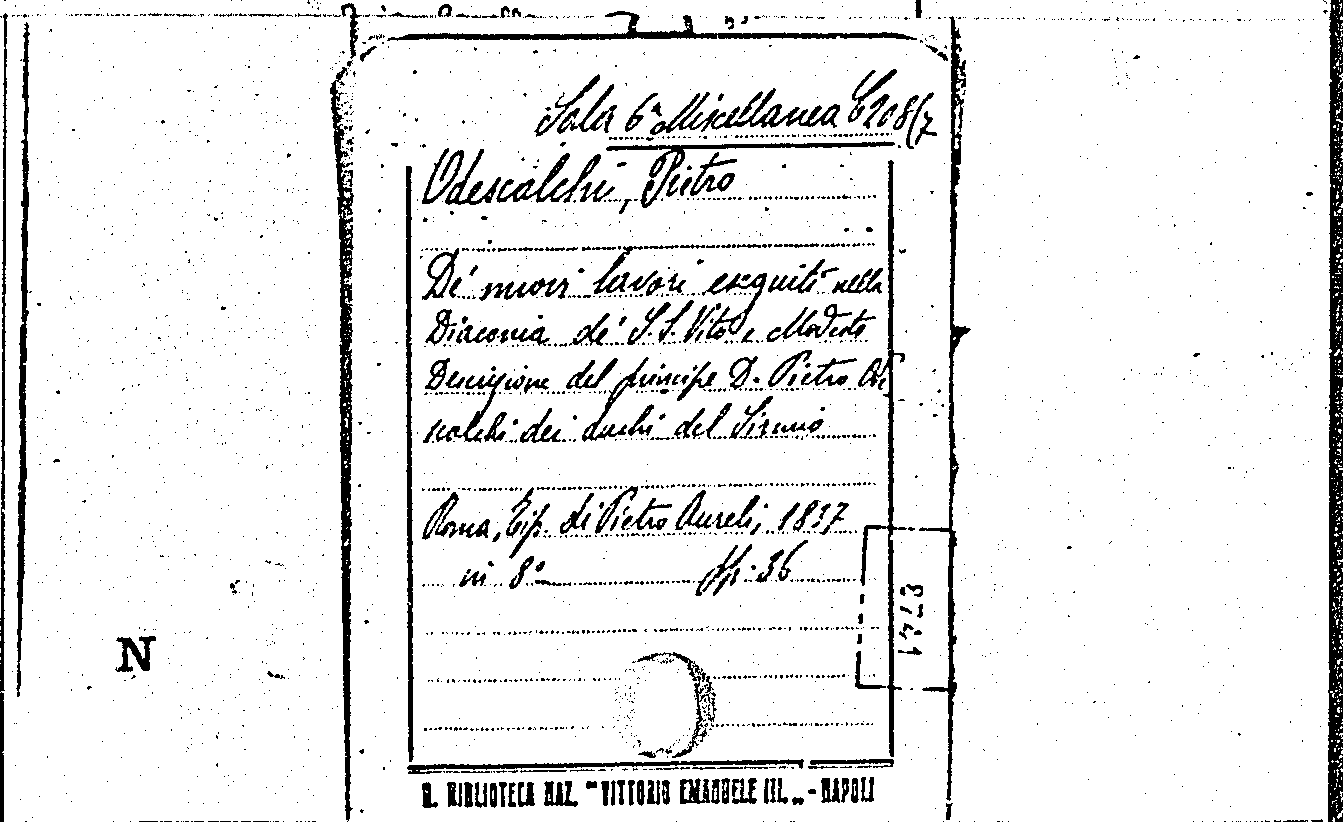 Sala 6ª Miscellanea C208/7
Odescalchi, Pietro
De' nuovi lavori eseguiti nella
Diaconia de' S.S. Vito e Modesto
Descrizione del principe D. Pietro Ode
scalchi dei duchi del Sirmio
Roma, Tip. di Pietro Aureli, 1837
in 8º pp. 36
N
R. BIBLIOTECA NAZ. "VITTORIO EMANUELE III." - NAPOLI